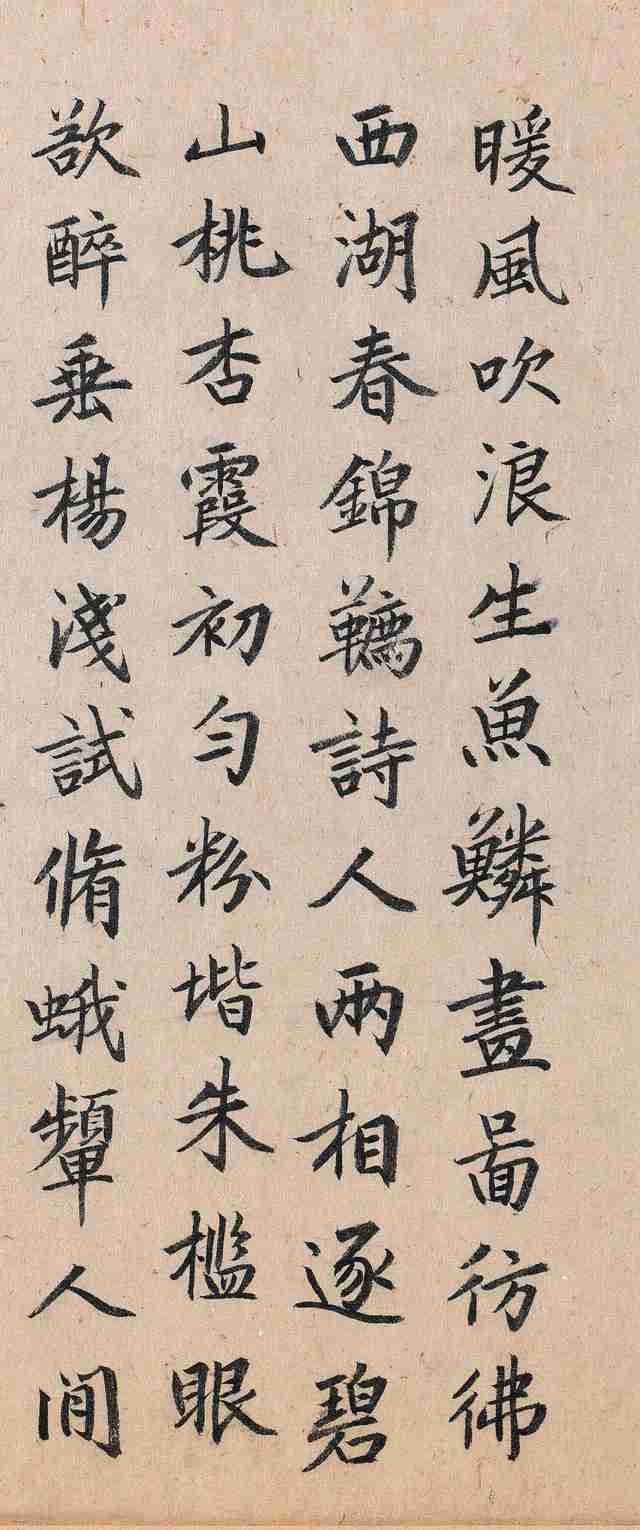 暖風吹浪生魚鱗畫啚彷彿
西湖春錦韉詩人兩相逐碧
山桃杏霞初勻粉堦朱檻眼
欲醉垂楊淺試脩蛾顰人間